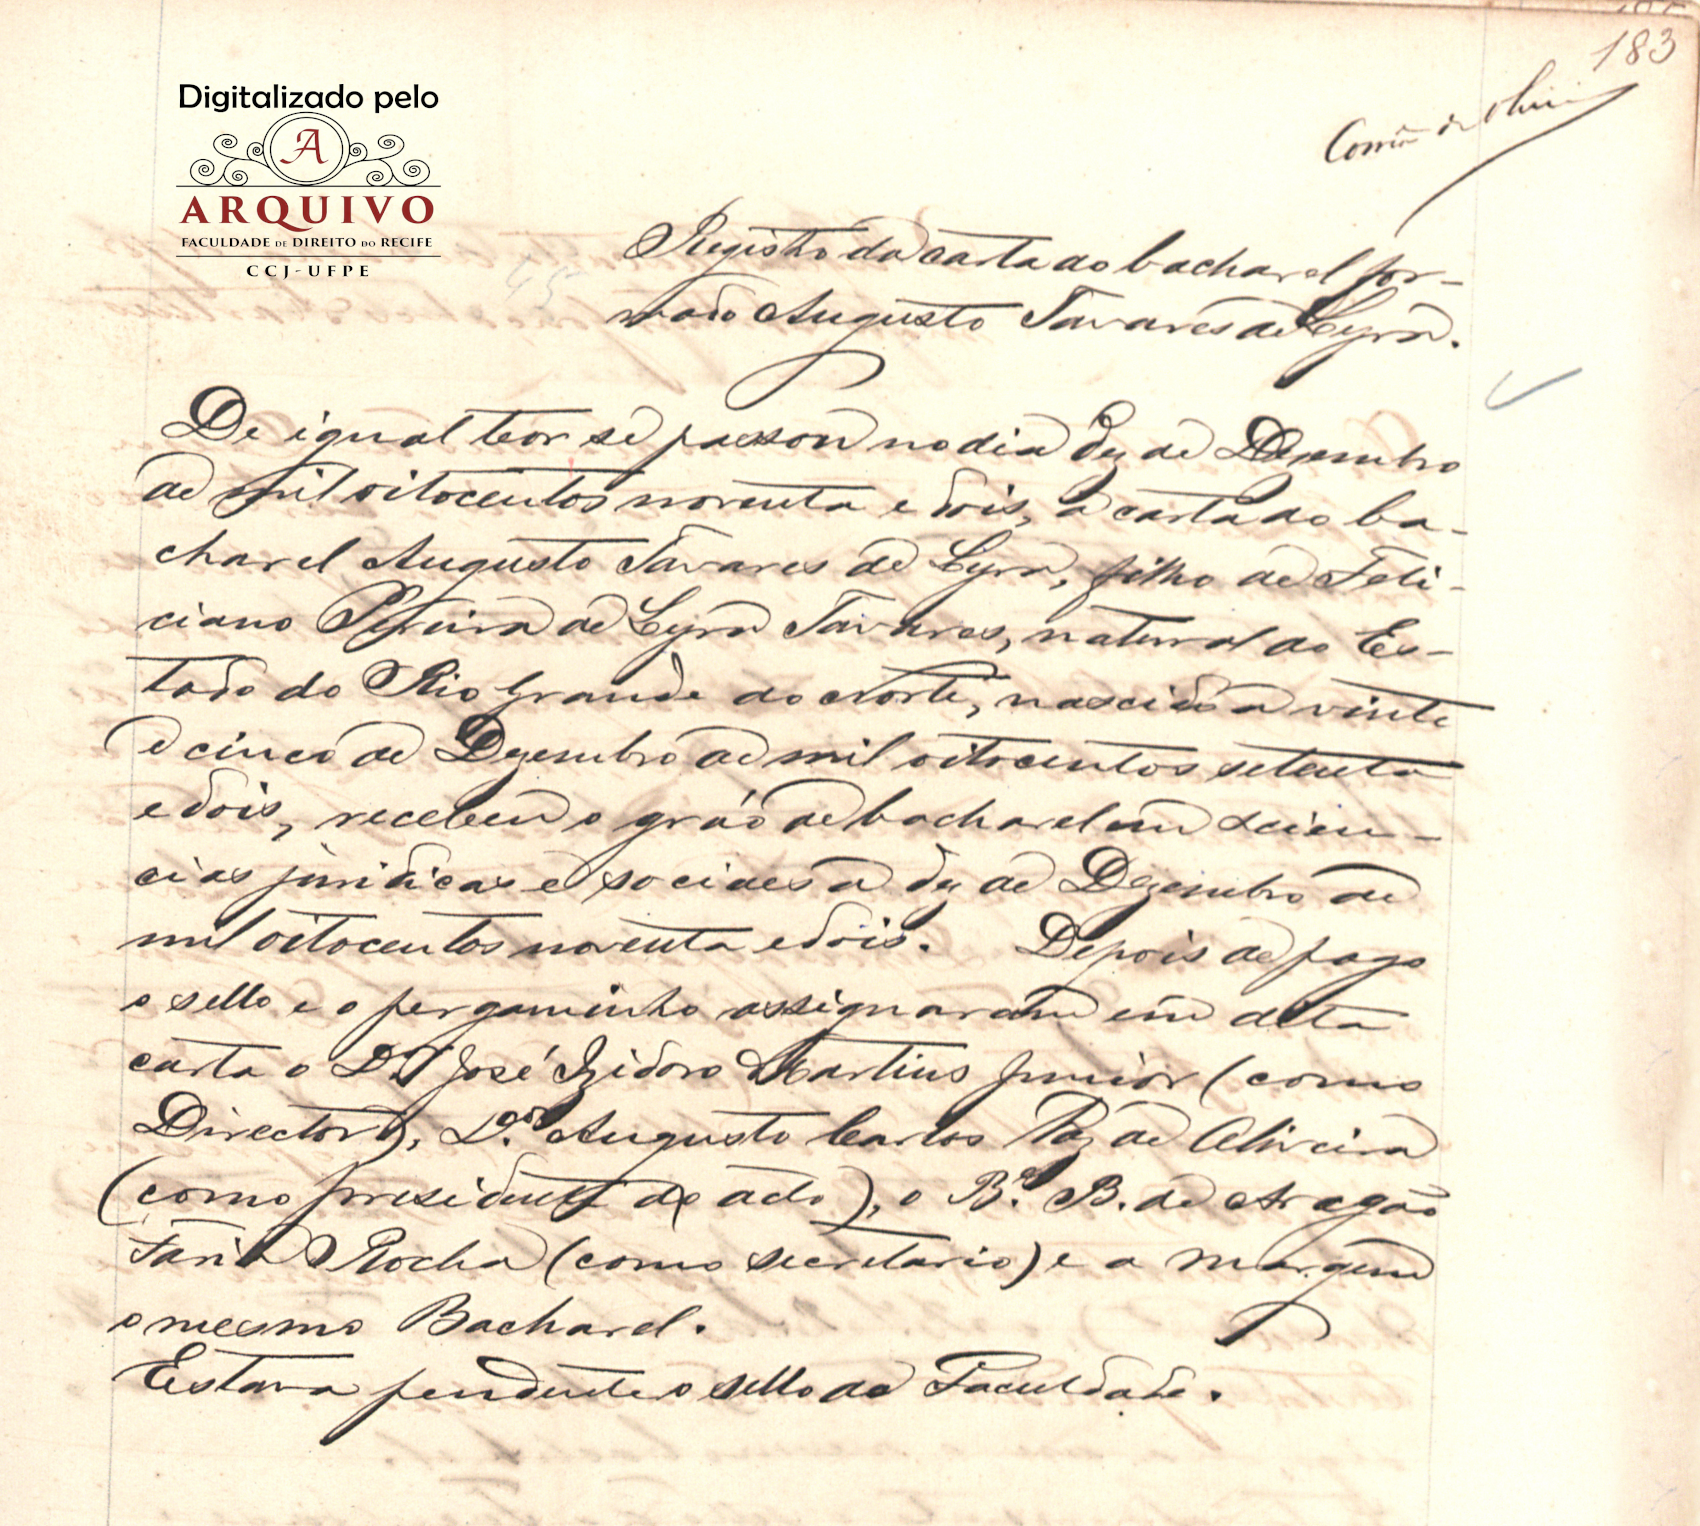 183
Digitalizado pelo
A
ARQUIVO
FACULDADE DE DIREITO DO RECIFE
CCJ-UFPE
Registro da carta do bacharel for-
mado Augusto Tavares de Lyra.
De igual teor se passou no dia dez de Dezembro
de mil oitocentos noventa e dois, a carta do ba-
charel Augusto Tavares de Lyra, filho de Feli-
ciano Pereira de Lyra Tavares, natural do Es-
tado do Rio Grande do Norte, nascido a vinte
e cinco de Dezembro de mil oitocentos setenta
e dois, recebeu o gráo de bacharel em scien-
cias juridicas e sociaes a dez de Dezembro de
mil oitocentos noventa e dois. Depois de pago
o sello e o pergaminho assignaram em dita
carta o Dr José Izidoro Martins Junior (como
Director), Dr. Augusto Carlos Vaz de Oliveira
(como presidente do acto), o Bel. B. de Aragão
Faria Rocha (como secretario) e a margem
o mesmo Bacharel.
Estava pendente o sello da Faculdade.